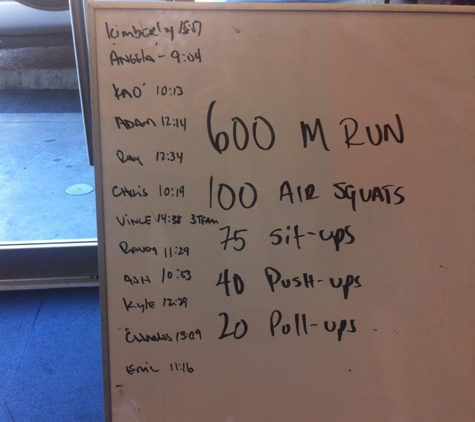 Kimberly 15:17
ANGELA - 9:04
KAO 10:13
ADAM 12:14
RAY 12:34
CHRIS 10:19
VINCE 14:38 3 TEAM
RANDY 11:29
10:53
KYLE 12:29
CHARLES 13:09
Eric 11:16
600 M RUN
100 AIR SQUATS
75 Sit-ups
40 Push-ups
20 Pull-ups